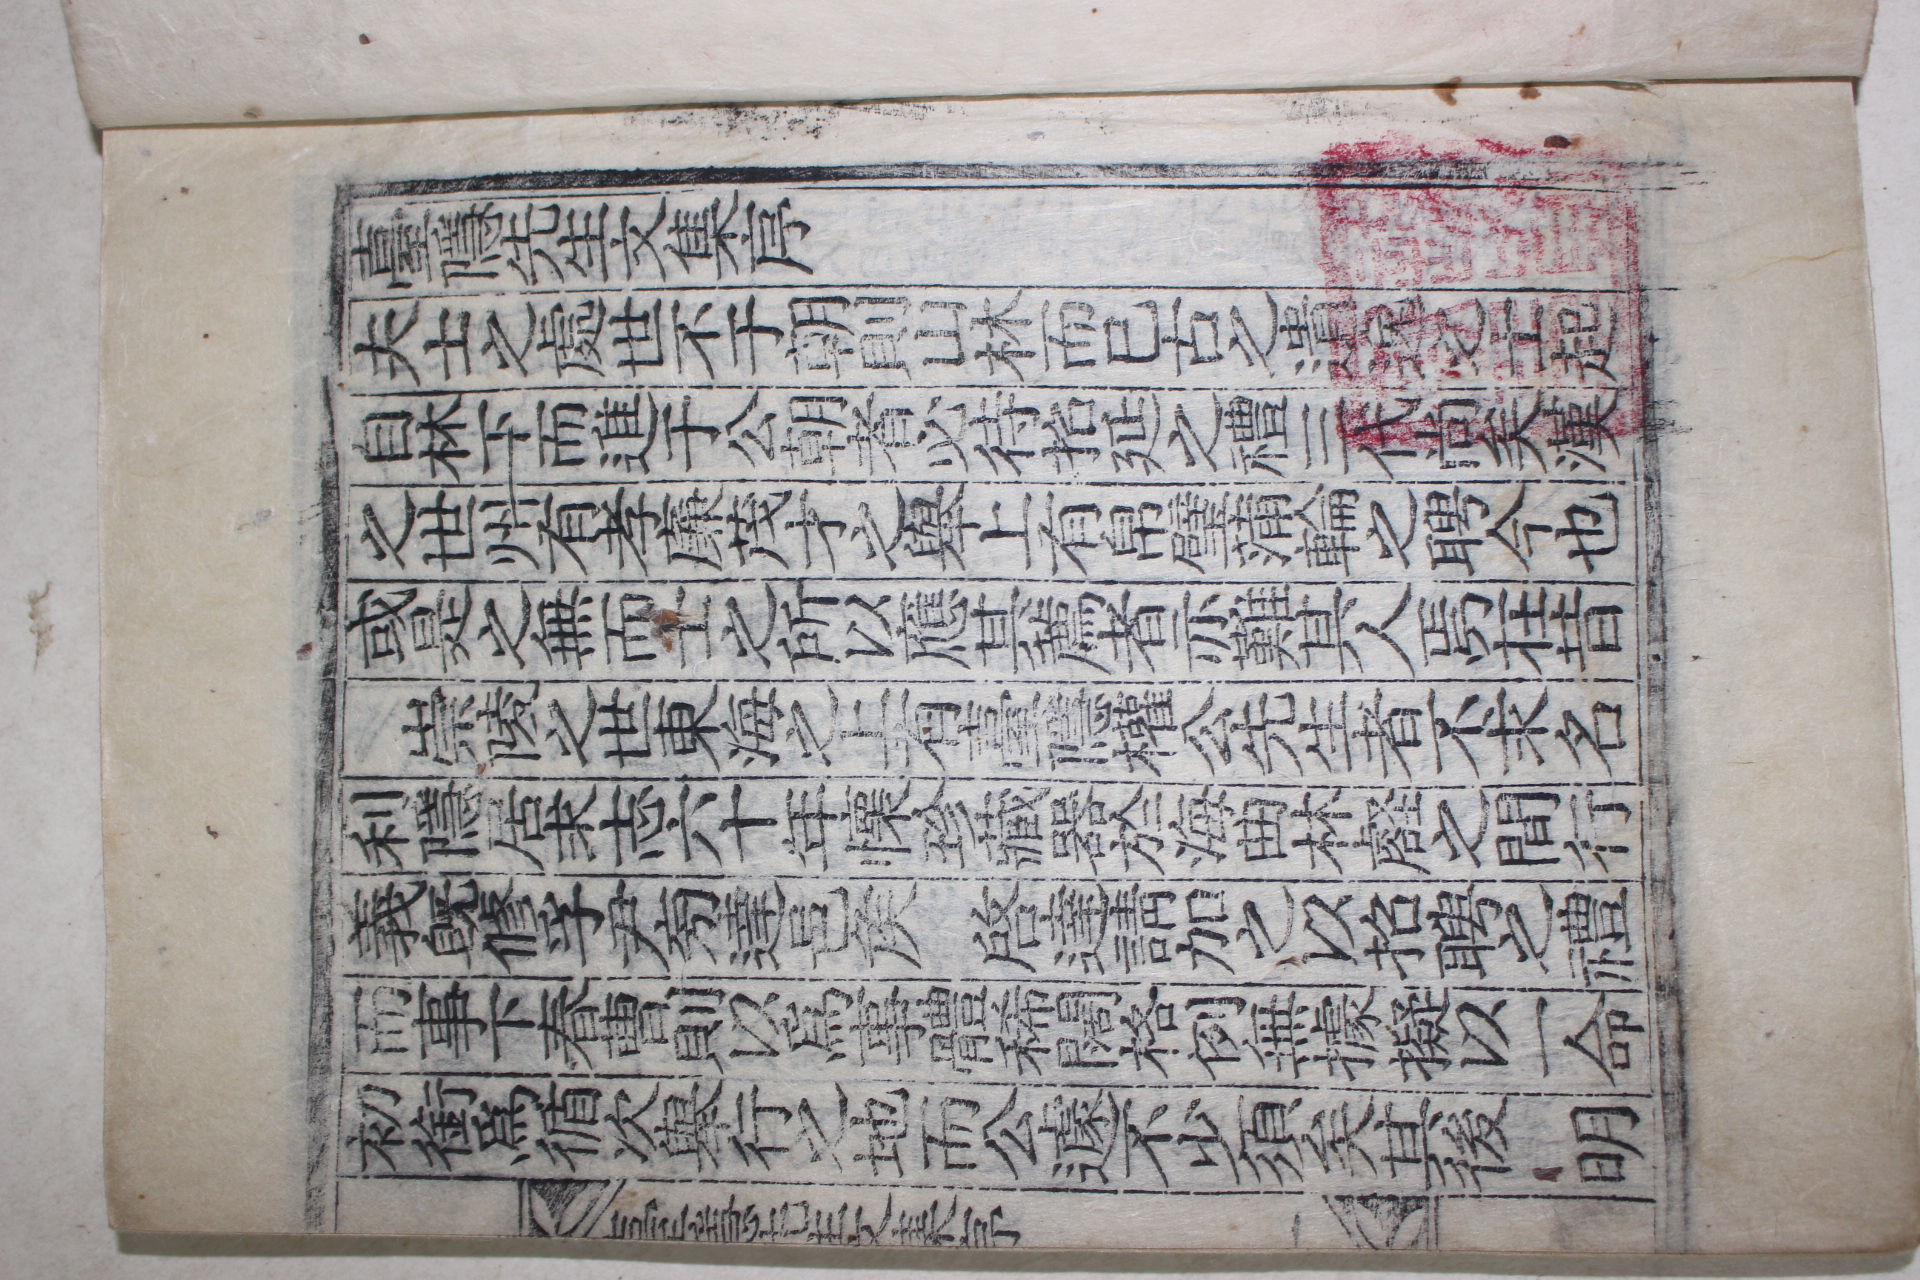 臺隱先生文集序
夫士之處世不于朝則山林而已古之遺逸之士起
自林下而進于公朝者必待招延之禮三代尚矣漢
之世州有孝廉茂才之舉上有帛璧蒲輪之聘今也
或是之無而士之所以應其薦者亦難其人焉在昔
崇陵之世東海之上有臺隱權公先生者不求名
利隱居求志六十年懷珍藏器於海曲林壑之間行
義旣修孚尹旁達邑矦 啓達請加之以招聘之禮
而事下春曹則以爲事體稀闊格例無據擬以一命
初銜爲循次舉行之地而公遽不少須矣其後 明
文集序